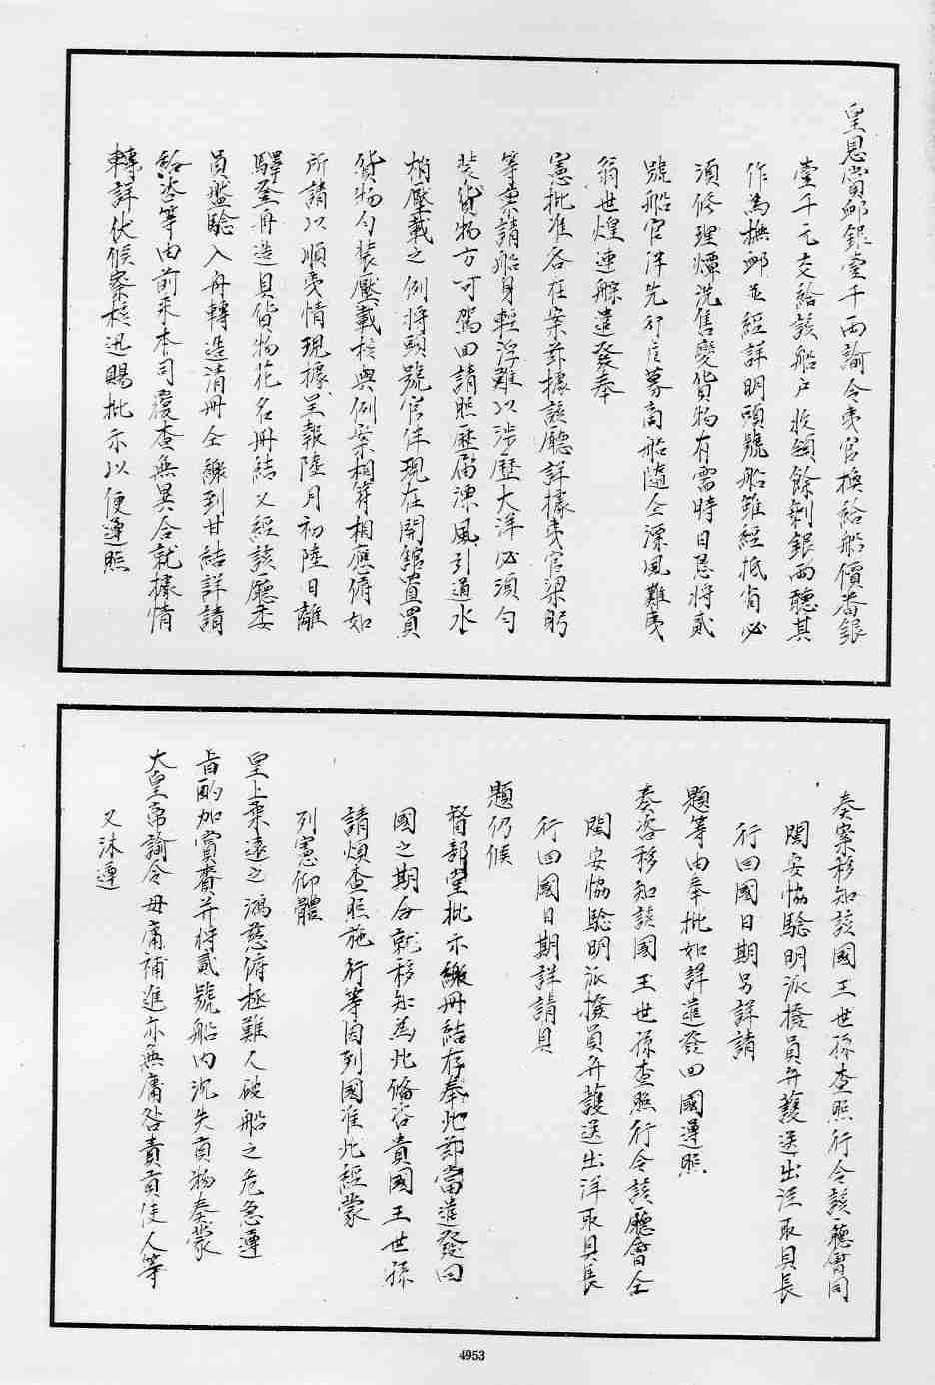 皇恩賞卹銀壹千兩諭令夷官換給船價番銀
壹千元交給該船戶收領餘剩銀兩聽其
作為撫卹並經詳明頭號船雖經抵省必
須修理燂洗售變貨物有需時日急將貳
號船官伴先行雇募商船隨仝漂風難夷
翁世煌連䑸遣發奉
憲批准咨在案茲據該廳詳據夷官梁躬
等稟請船身輕浮難以涉歷大洋必須勻
裝貨物方可駕回請照歷屆漂風引通水
梢壓載之例將頭號官伴現在開館置買
貨物勻裝壓載核與例案相符相應俯如
所請以順夷情現據呈報陸月初陸日離
驛登舟造具貨物花名冊結又經該廳委
員盤驗入冊轉造清冊仝繳到甘結詳請
給咨等由前來本司覆查無異合就據情
轉詳伏候察核迅賜批示以便遵照
奏案移知該國王世孫查照行令該廳會同
閩安協驗明派撥員弁護送出洋取具長
行回國日期另詳請
題等由奉批如詳遣發回國遵照
奏咨移知該國王世孫查照行令該廳會仝
閩安協驗明派撥員弁護送出洋取具長
行回國日期詳請具
題仍候
督部堂批示繳冊結存奉此茆當遣發回
國之期合就移知為此備咨貴國王世孫
請煩查照施行等因到國准此經蒙
列憲仰體
皇上柔遠之鴻慈俯極難人破船之危急遵
旨酌加賞賚并將貳號船內沉失貢物奏蒙
大皇帝諭令毋庸補進亦無庸咎責貢使人等
又沐遵
4953